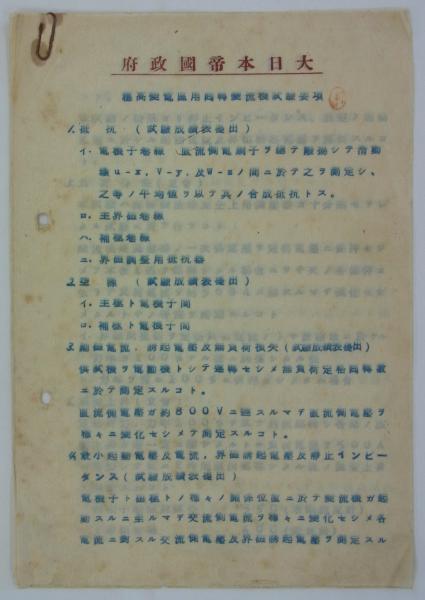 大日本帝國政府
穗高變電區用回轉變流機試驗要項
1. 抵抗 (試驗成績表提出)
イ. 電機子卷線 直流側電刷子ヲ總テ離揚シテ滑動
環u-x, V-y, 及W-zノ間ニ於テ之ヲ測定シ、
之等ノ平均値ヲ以テ其ノ合成抵抗トス。
ロ. 主界磁卷線
ハ. 補極卷線
ニ. 界磁調整用抵抗器
2. 空隙 (試驗成績表提出)
イ. 主極ト電機子間
ロ. 補極ト電機子間
3. 勵磁電流, 誘起電壓及無負荷損失 (試驗成績表提出)
供試機ヲ電動機トシテ運轉セシメ無負荷定格回轉數
ニ於テ測定スルコト。
直流側電壓ガ約800Vニ達スルマデ直流側電壓ヲ
種々ニ變化セシメテ測定スルコト。
4. 最小起動電壓及電流, 界磁誘起電壓及靜止インピー
ダンス (試驗成績表提出)
電機子ト磁極トノ種々ノ關係位置ニ於テ變流機ガ起
動スルニ至ルマデ交流側電壓ヲ種々ニ變化セシメ各
電流ニ對スル交流側電壓及界磁誘起電壓ヲ測定スル